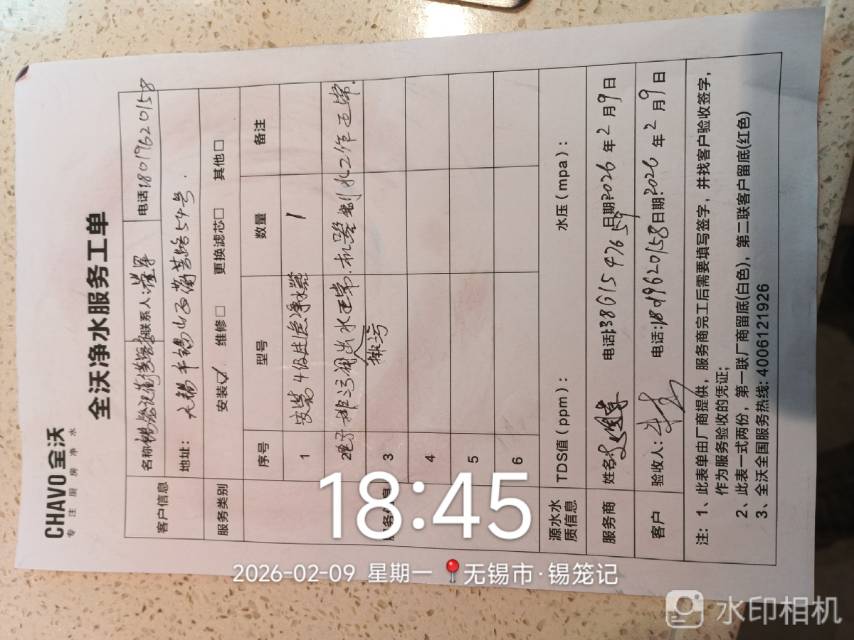 CHAVO全沃
专注厨房净水
全沃净水服务工单
客户信息
名称
联系人:
电话:18017620158
地址:
54号.
服务类别
安装☑ 维修☐ 更换滤芯☐ 其他☐
序号 型号 数量 备注
1 安装4级 净水器 1
2 电子排污阀出水正常.机器制水工作正常.
排污
3
4
5
6
源水水质信息
TDS值(ppm): 水压(mpa):
服务商
姓名:
电话:13861547659
日期:2026年2月9日
客户
验收人:
电话:
日期:2026年2月9日
注: 1、此表单由厂商提供, 服务商完工后需要填写签字, 并找客户验收签字,
作为服务验收的凭证;
2、此表一式两份, 第一联厂商留底(白色), 第二联客户留底(红色)
3、全沃全国服务热线: 4006121926
18:45
2026-02-09 星期一 📍无锡市·锡笼记
水印相机